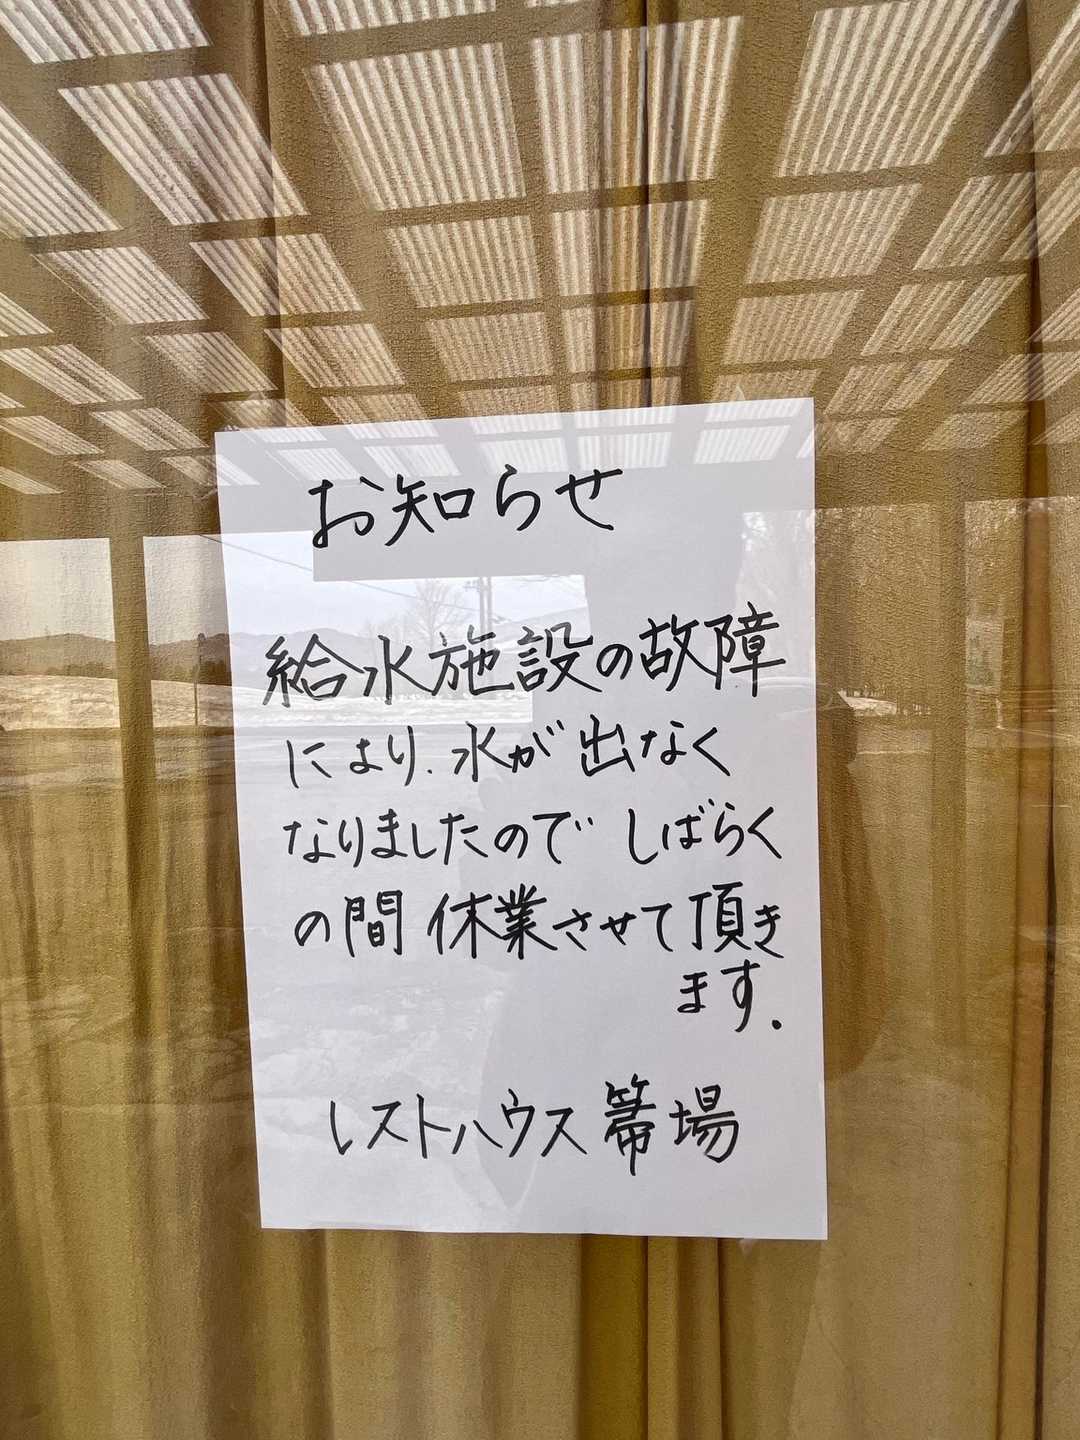 お知らせ
給水施設の故障
により、水が出なく
なりましたので しばらく
の間 休業させて頂き
ます.
レストハウス箒場